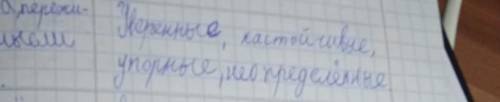 пережи-
Уверенные, настойчивые,
упорные, неопределённые